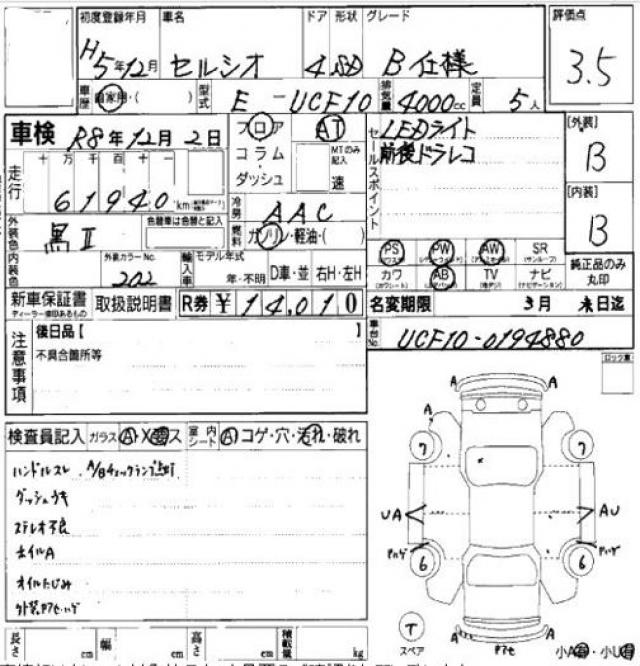 初度登録年月 車名 ドア 形状 グレード 評価点
H5年12月 セルシオ 4 SD B仕様 3.5
車歴 自家用・( ) 型式 E-UCF10 排気量 4000cc 定員 5人
車検 R8年12月2日 フロア AT セールスポイント LEDライト [外装]
前後ドラレコ B
コラム MTのみ記入
ダッシュ 速
走行 十万千百十一
61940km
冷房 AAC [内装]
B
外装色 黒II 色替車は色替と記入 燃料 ガソリン・軽油・( )
PS (パワステ) PW (パワーウィンド) AW (アルミホイール) SR (サンルーフ) 純正品のみ丸印
カワ (カワシート) AB (エアバッグ) TV (地デジ) ナビ (ナビゲーション)
内装色 外装カラーNo. 202 輸入車 モデル年式 年・不明 D車・並 右H・左H
新車保証書 ディーラー捺印あるもの 取扱説明書 R券 ¥14,010 名変期限 3月 末日迄
注意事項 後日品【 】 車台No. UCF10-0194880
不具合箇所等
ロック車
検査員記入 ガラス A・X・ス 室内シート A コゲ・穴・汚れ・破れ
ハンドルスレ A/Bチェックランプ点灯
ダッシュウキ
ステレオ不良
ホイルA
オイルにじみ
外装アセ・ハゲ
A A
A A
7 7
UA AU
ハゲ ハゲ
6 6
T
スペア
A A
アセ
小A・小U
長さ cm 幅 cm 高さ cm 積載量 kg